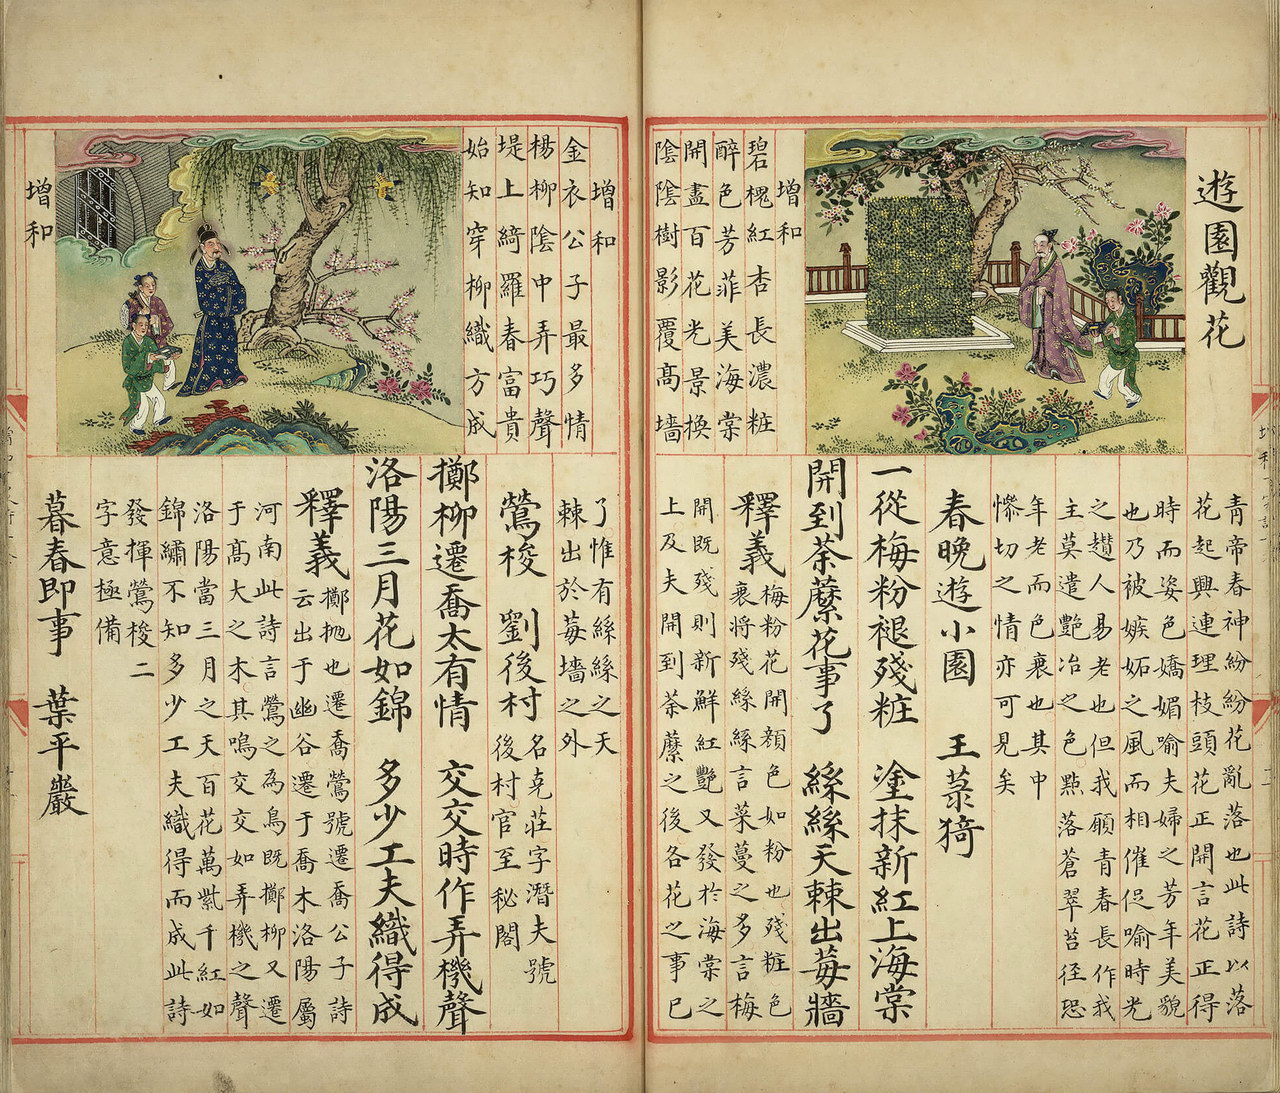 遊園觀花
增和
碧槐紅杏長濃粧
醉色芳菲美海棠
開盡百花光景換
陰陰樹影覆高墻
青帝春神紛紛花亂落也此詩以落
花起興連理枝頭花正開言花正得
時而姿色嬌媚喻夫婦之芳年美貌
也乃被嫉妬之風而相催促喻時光
之趲人易老也但我願青春長作我
主莫遣艷冶之色點落蒼翠苔徑恐
年老而色衰也其中
慘切之情亦可見矣
春晚遊小園 王菉猗
一從梅粉褪殘粧 塗抹新紅上海棠
開到荼蘼花事了 絲絲天棘出莓牆
釋義
梅粉花開顔色如粉也殘粧色
衰將殘絲絲言菜蔓之多言梅
開既殘則新鮮紅艷又發於海棠之
上及夫開到荼蘼之後各花之事已
增和
金衣公子最多情
楊柳陰中弄巧聲
堤上綺羅春富貴
始知穿柳織方成
增和
了惟有絲絲之天
棘出於莓墻之外
鶯梭 劉後村
名克莊字潛夫號
後村官至秘閣
擲柳遷喬太有情 交交時作弄機聲
洛陽三月花如錦 多少工夫織得成
釋義
擲抛也遷喬鶯號遷喬公子詩
云出于幽谷遷于喬木洛陽屬
河南此詩言鶯之為鳥既擲柳又遷
于高大之木其鳴交交如弄機之聲
洛陽當三月之天百花萬紫千紅如
錦繡不知多少工夫織得而成此詩
發揮鶯梭二
字意極備
暮春即事 葉平巖